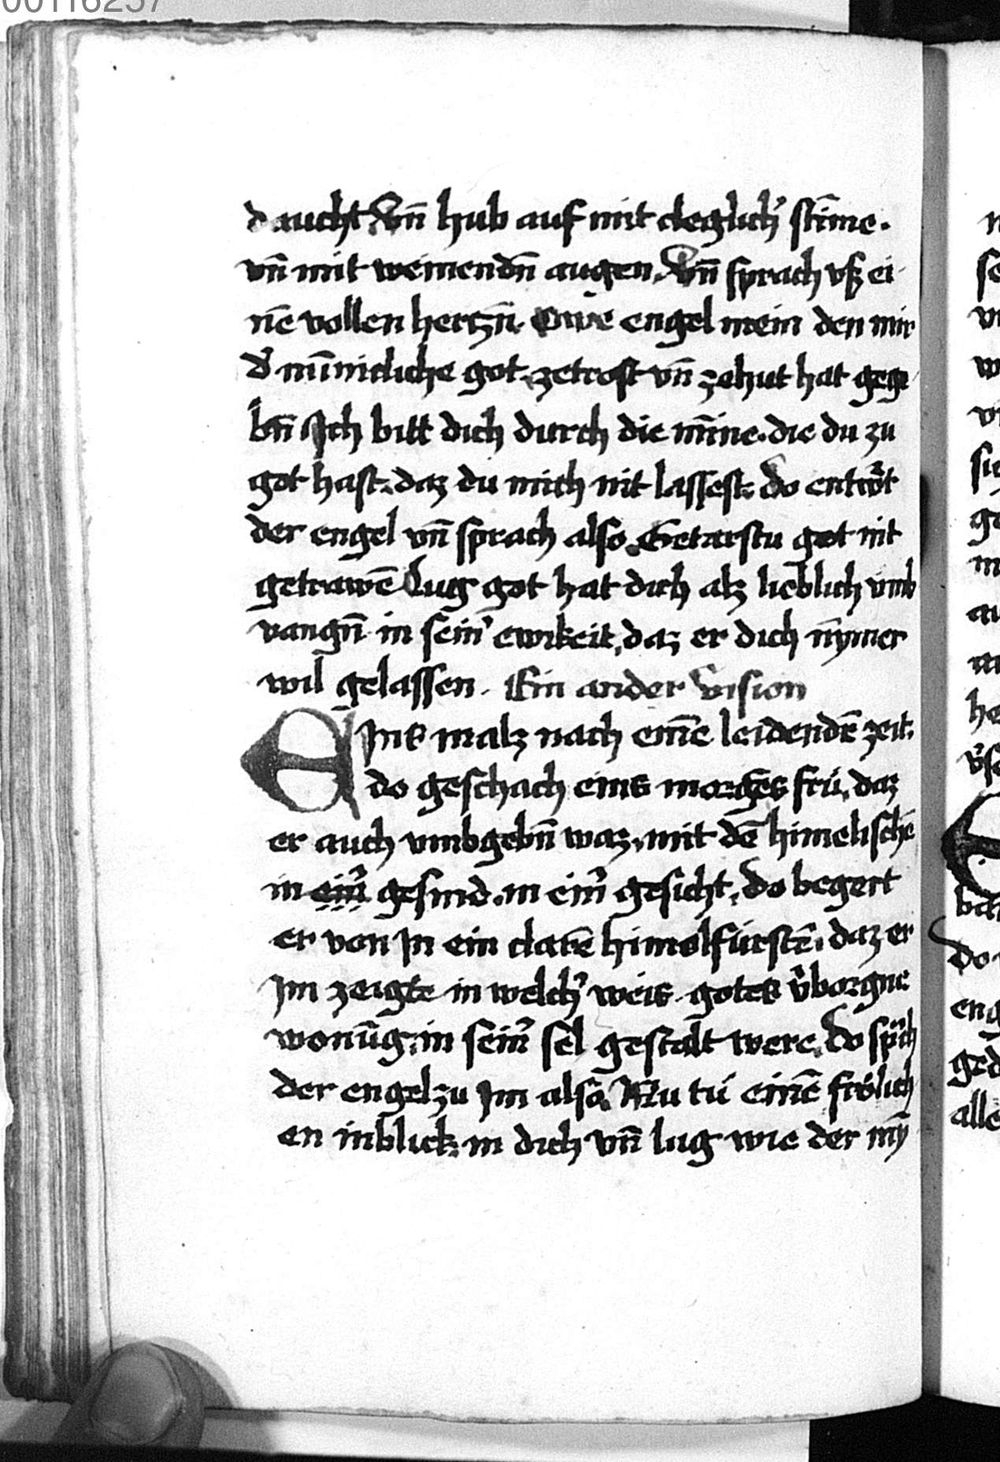 00116257
daucht. Vn̄ hub auf mit cleglichʼ stīme.
vn̄ mit weinendn̄ augen. Vn̄ sprach vß ei
nē vollen hertzn̄. Owe engel mein den mir
dʼ mīnicliche got. zetrost vn̄ zehut hat gege
bn̄ Ich bitt dich durch die mīne. die du zu
got hast. daz du mich nit lassest. Do entwʼt
der engel vn̄ sprach also. Getarstu got nit
getrawē Lug got hat dich alz lieblich vmb
vangn̄ in seinʼ ewikeit, daz er dich nymer
wil gelassen. Ein ander vision
EIns malz nach einē leidendē zeit.
do geschach eins morges fru, daz
er auch vmbgebn̄ waz. mit dē himelischē
in einʼ gesind. in einʼ gesicht. do begert
er von In ein clarē himelfurstē. daz er
Im zeigte in welchʼ weis gotes vʼborgne
wonūg. in seinʼ sel gestalt were. Do spͣch
der engel zu Im also. Nu tu einē frolich
en inblick in dich vn̄ lug wie der mȳ